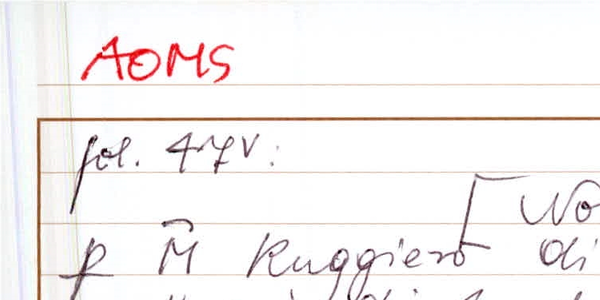 AOMS
fol. 47v:
[ No
p M̄ Ruggiero di